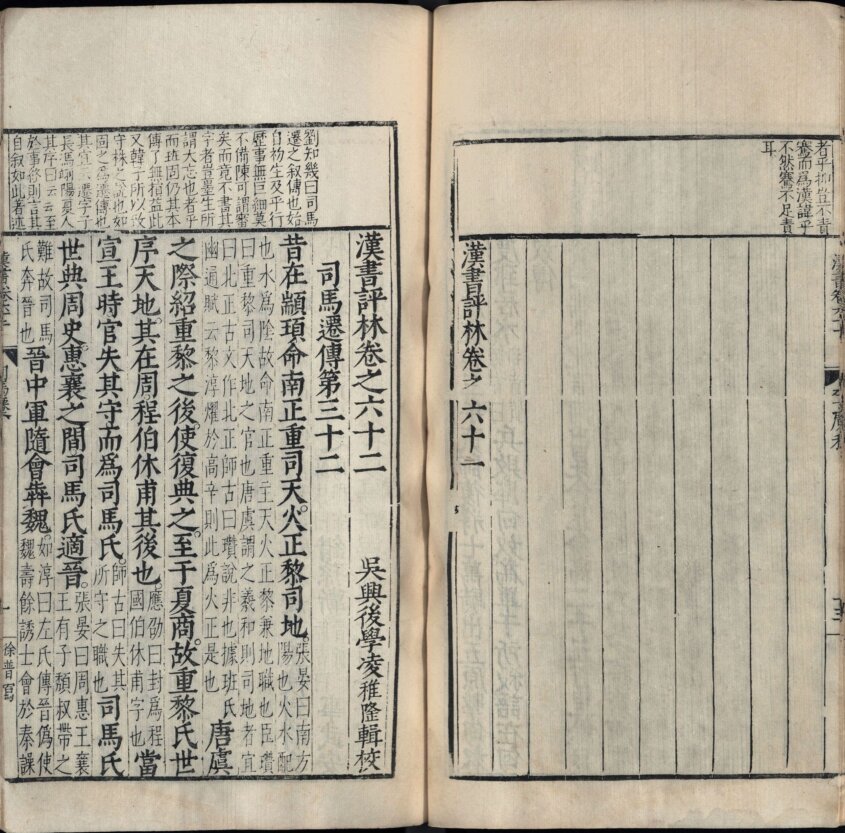 者乎抑豈不責
騫而為漢諱乎
不然騫不足責
耳
漢書評林卷之六十一
劉知幾曰司馬
遷之叙傳也始
自物生及乎行
歷事無巨細莫
不備陳可謂審
矣而竟不書其
字者豈墓生所
謂大忘也者乎
而班固仍其本
傳了無損益此
又韓子所以致
守株之說也如
固之為遷傳也
其宜云遷字子
長馮翊陽夏人
其序曰云云至
於事終則言其
自叙如此著述
漢書評林卷之六十二 吳興後學凌稚隆輯校
司馬遷傳第三十二
昔在顓頊命南正重司天火正黎司地。張晏曰南方陽也火水配
也水爲陰故命南正重主天火正黎兼地職也臣瓚
曰重黎司天地之官也唐虞謂之羲和則司地者宜
曰北正古文作北正師古曰瓚說非也據班氏
幽通賦云黎淳燿於高辛則此爲火正是也 唐虞
之際紹重黎之後使復典之。至于夏商故重黎氏世
序天地。其在周程伯休甫其後也。應劭曰封爲程國伯休甫字也 當
宣王時官失其守而爲司馬氏。師古曰失其所守之職也 司馬氏
世典周史。惠襄之間司馬氏適晉。張晏曰周惠王襄王有子頽叔帶之
難故司馬氏奔晉也 晉中軍隨會犇魏。如淳曰左氏傳晉僞使魏壽餘誘士會於秦譟
一
徐普寫